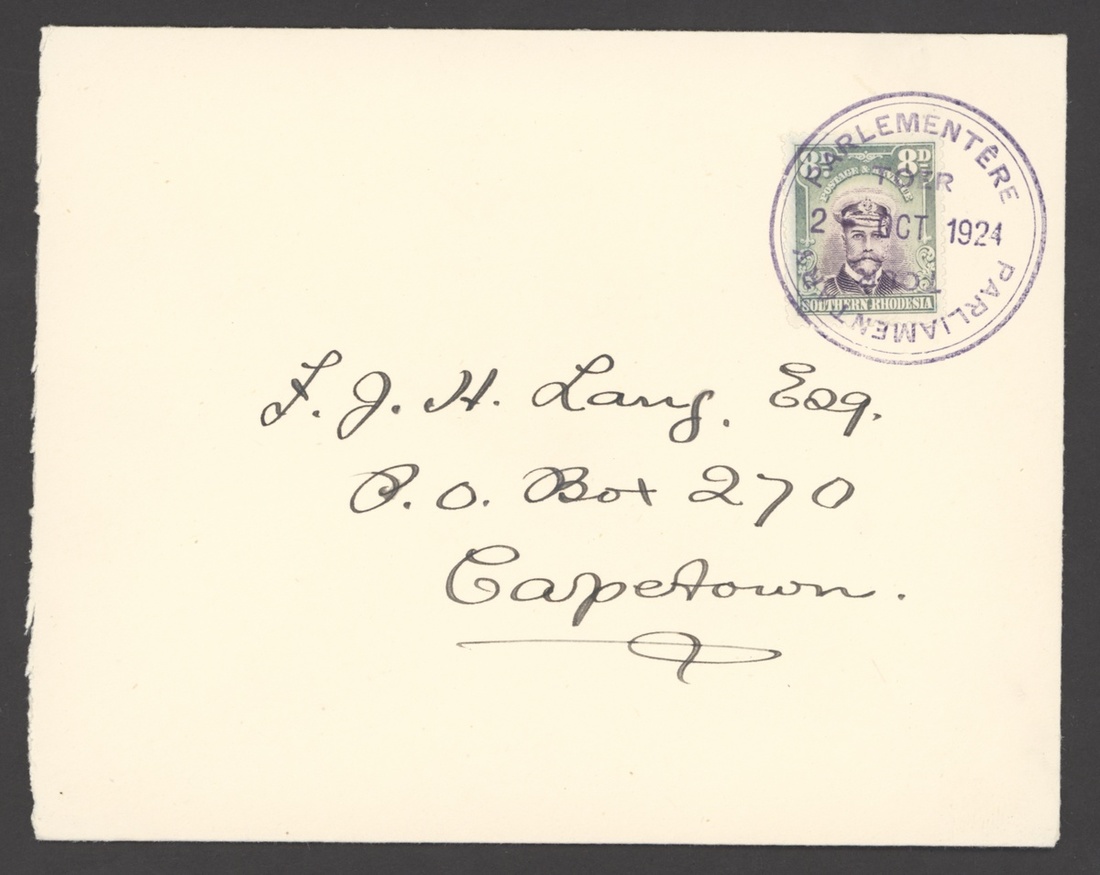 PARLEMENTÊRE
TOER
2 OCT 1924
TOUR
PARLIAMENTARY
8D 8D
POSTAGE & REVENUE
SOUTHERN RHODESIA
F. J. H. Lang. Esq.
P. O. Box 270
Capetown.